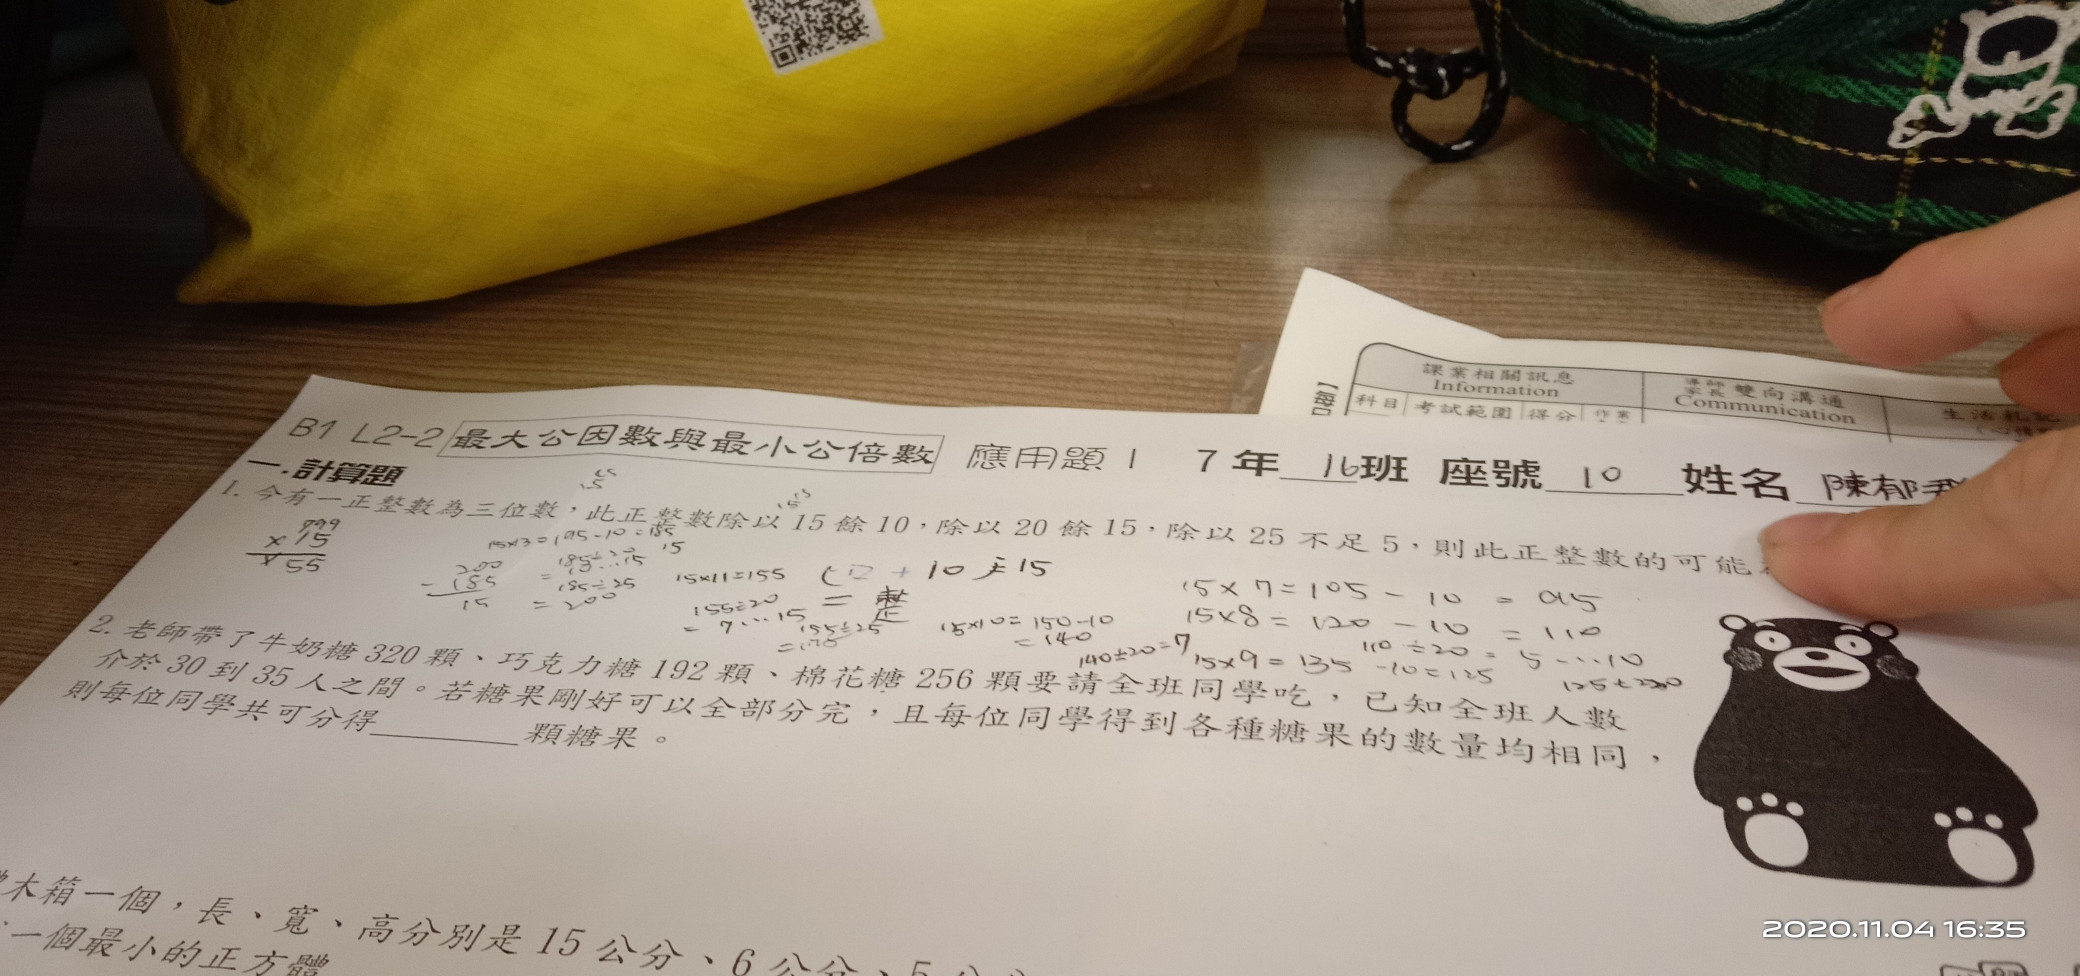 課業相關訊息
Information
導師 家長 雙向溝通
Communication
生活札記
科目 考試範圍 得分 作業
B1 L2-2 最大公因數與最小公倍數 應用題 1 7年 16班 座號 10 姓名 陳郁
一.計算題
1. 今有一正整數為三位數，此正整數除以 15 餘 10，除以 20 餘 15，除以 25 不足 5，則此正整數的可能
999
× 15
55
200
- 185
15
15×11=155
155÷20
= 7...15
155÷25
+ 10 ÷ 15
=
15×10=150-10
=140
140÷20=7
15×7=105-10=95
15×8=120-10=110
110÷20=5...10
15×9=135-10=125
2. 老師帶了牛奶糖 320 顆、巧克力糖 192 顆、棉花糖 256 顆要請全班同學吃，已知全班人數
介於 30 到 35 人之間。若糖果剛好可以全部分完，且每位同學得到各種糖果的數量均相同，
則每位同學共可分得________顆糖果。
木箱一個，長、寬、高分別是 15 公分、6 公分、5 公分
一個最小的正方體
2020.11.04 16:35